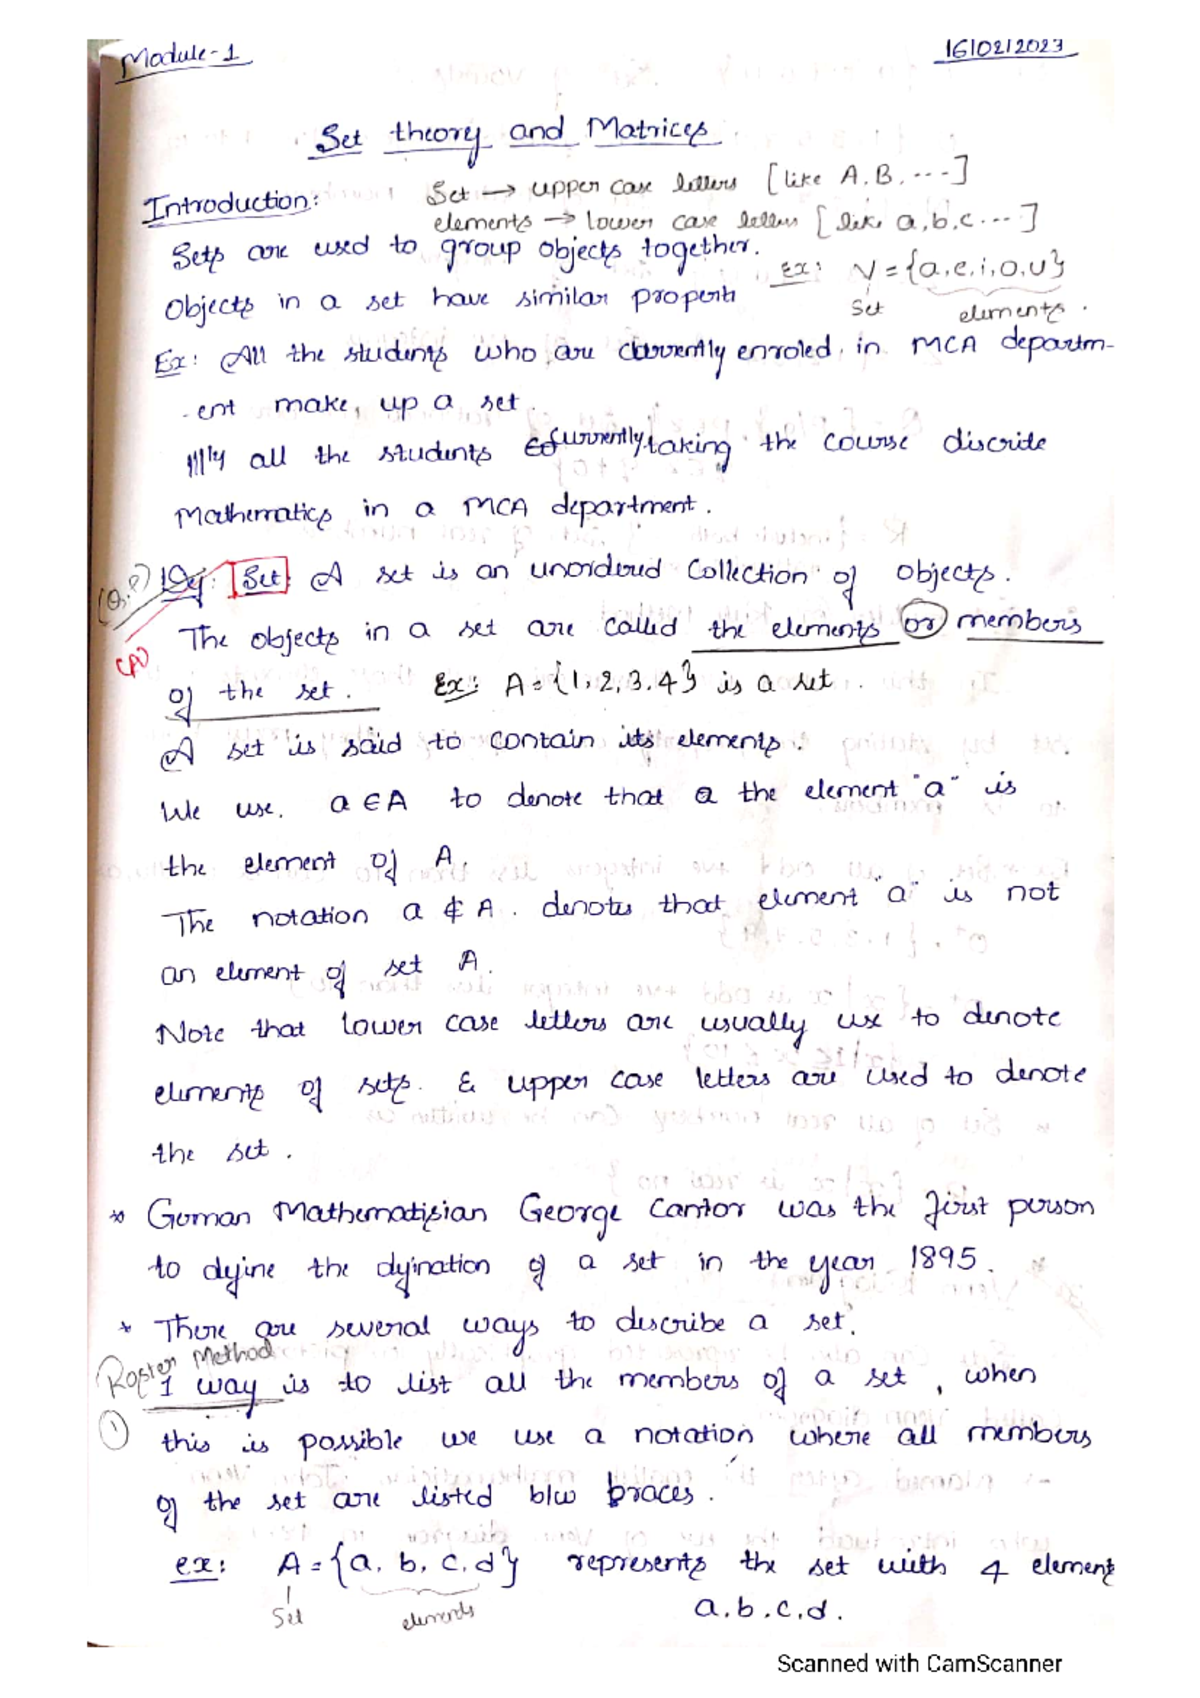 Module-1
16/02/2023
Set theory and Matrices
Introduction:
Set → upper case letters [like A.B. ---]
elements → lower case letters [like a,b,c ---]
Sets are used to group objects together.
Ex: V = {a,e,i,o,u}
Set elements.
Objects in a set have similar propert
Ex: All the students who are currently enroled in MCA departm-
-ent make up a set.
|||ly all the students currently taking the course discrite
Mathematics in a MCA department.
(Q.P) Def: Set: A set is an unordered Collection of objects.
(A)
The objects in a set are called the elements or members
of the set. Ex: A = {1,2,3.4} is a set.
A set is said to contain its elements.
We use. a ∈ A to denote that a the element "a" is
the element of A.
The notation a ∉ A. denotes that element "a" is not
an element of set A.
Note that lower case letters are usually use to denote
elements of sets. & upper case letters are used to denote
the set.
* German Mathematisian George Cantor was the first person
to define the defination of a set in the year 1895.
* There are several ways to describe a set.
Roster Method
1 way is to list all the members of a set, when
① this is possible we use a notation where all members
of the set are listed b/w braces.
ex: A = {a, b, c, d} represents the set with 4 element
Set elements a.b.c.d.
Scanned with CamScanner